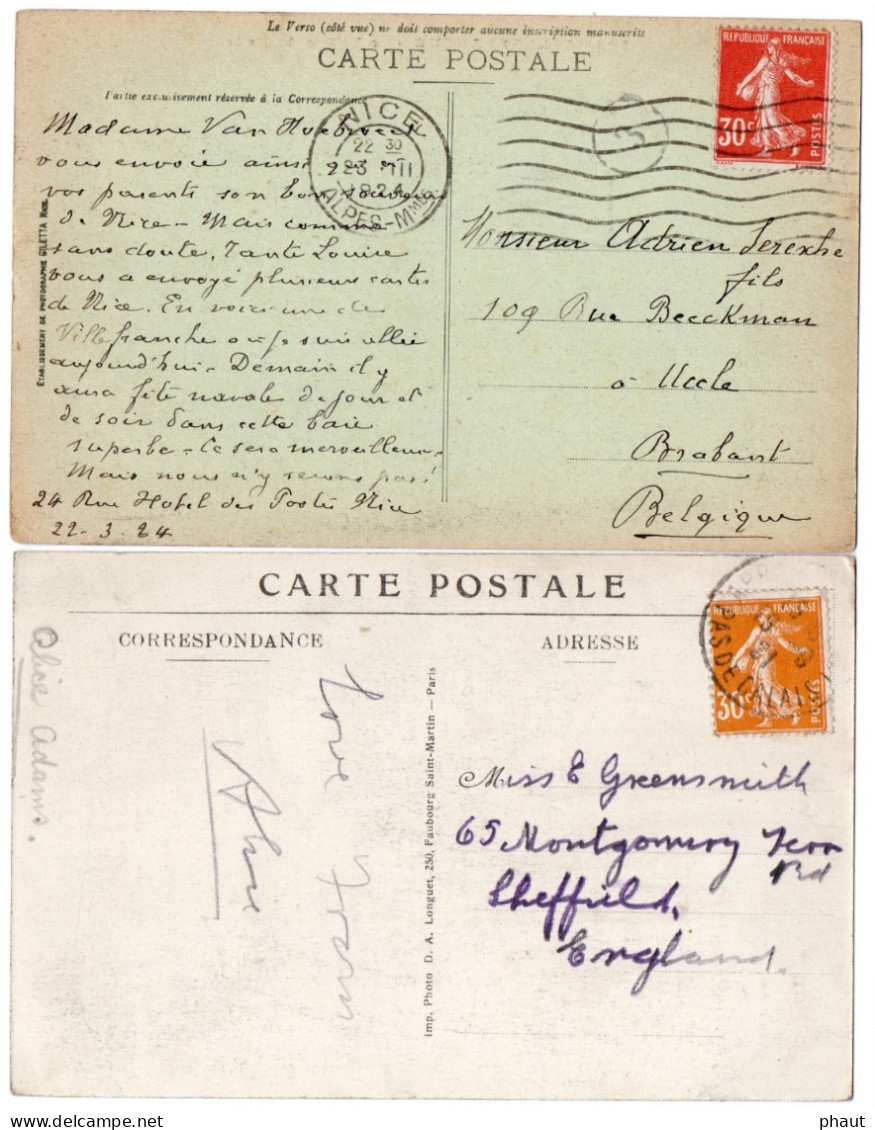 Le Verso (côté vue) ne doit comporter aucune inscription manuscrite
CARTE POSTALE
Partie exclusivement réservée à la Correspondance
REPUBLIQUE FRANÇAISE
30c
POSTES
NICE
22 30
23 -III
1924
ALPES-Mmes
3
Madame Van
vous envoie ainsi
vos parents son bon souvenir
de Nice - Mais comme
sans doute, Tante Louise
vous a envoyé plusieurs cartes
de Nice. En voici une de
Villefranche où je suis allée
aujourd'hui - Demain il y
aura fête navale de jour et
de soir dans cette baie
superbe - Ce sera merveilleux -
Mais nous n'y serons pas!
24 Rue Hotel des Postes Nice
22-3.24
ETABLISSEMENT DE PHOTOGRAPHIE GILETTA NICE.
Monsieur Adrien Serexhe
fils
109 Rue Beeckman
à Uccle
Brabant
Belgique
CARTE POSTALE
CORRESPONDANCE
ADRESSE
REPUBLIQUE FRANÇAISE
30c
POSTES
PAS DE CALAIS
Alice Adams.
love from
Alice
Imp. Photo D. A. Longuet, 250, Faubourg Saint-Martin — Paris
Miss E Greensmith
65 Montgomery Terr
Rd
Sheffield,
England.
phaut